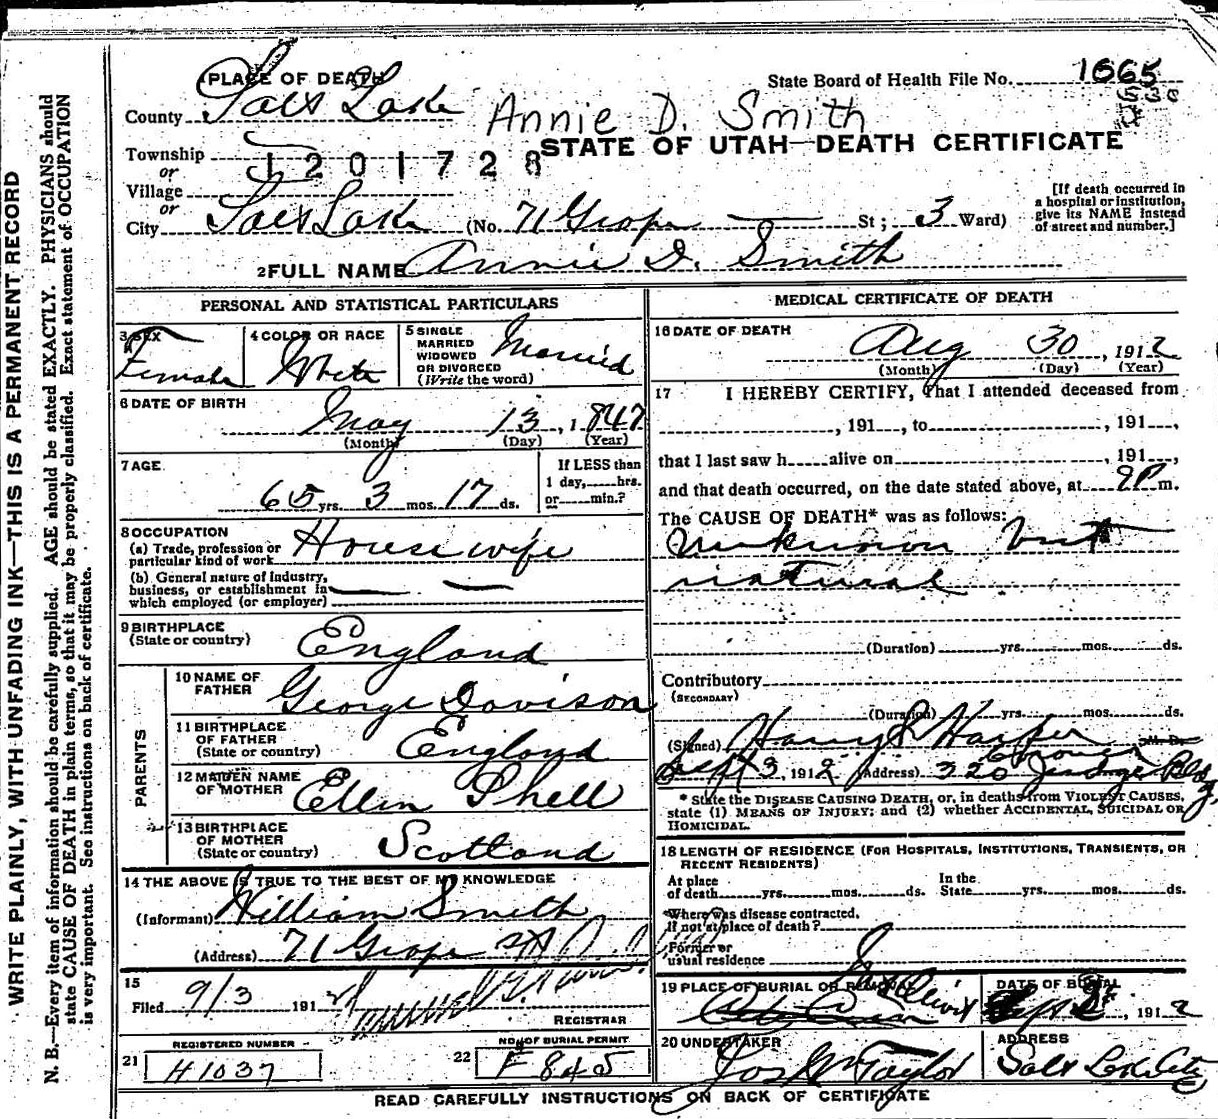 PLACE OF DEATH
State Board of Health File No. 1665
County Salt Lake
Annie D. Smith
STATE OF UTAH—DEATH CERTIFICATE
Township
or
1201728
Village
or
City Salt Lake (No. 71 Grape St; 3 Ward)
[If death occurred in
a hospital or institution,
give its NAME instead
of street and number.]
2 FULL NAME Annie D. Smith
PERSONAL AND STATISTICAL PARTICULARS
3 SEX
Female
4 COLOR OR RACE
White
5 SINGLE
MARRIED
WIDOWED
OR DIVORCED
(Write the word)
Married
6 DATE OF BIRTH
May 13, 1847
(Month) (Day) (Year)
7 AGE
65 yrs. 3 mos. 17 ds.
If LESS than
1 day, hrs.
or min.?
8 OCCUPATION
(a) Trade, profession or
particular kind of work
Housewife
(b) General nature of Industry,
business, or establishment in
which employed (or employer)
9 BIRTHPLACE
(State or country)
England
PARENTS
10 NAME OF
FATHER
George Davison
11 BIRTHPLACE
OF FATHER
(State or country)
England
12 MAIDEN NAME
OF MOTHER
Ellin Shell
13 BIRTHPLACE
OF MOTHER
(State or country)
Scotland
14 THE ABOVE IS TRUE TO THE BEST OF MY KNOWLEDGE
(Informant) William Smith
(Address) 71 Grape St
15
Filed 9/3 1912
REGISTRAR
REGISTERED NUMBER
21 H1037
NO. OF BURIAL PERMIT
22 F 845
MEDICAL CERTIFICATE OF DEATH
16 DATE OF DEATH
Aug 30, 1912
(Month) (Day) (Year)
17 I HEREBY CERTIFY, That I attended deceased from
, 191 , to , 191 ,
that I last saw h alive on , 191 ,
and that death occurred, on the date stated above, at 9P m.
The CAUSE OF DEATH* was as follows:
Unknown but
natural
(Duration) yrs. mos. ds.
Contributory
(SECONDARY)
(Duration) yrs. mos. ds.
(Signed) Harry S Harper M. D.
Coroner
Sept 3, 1912 (Address) 320 Judge Bldg
* State the DISEASE CAUSING DEATH, or, in deaths from VIOLENT CAUSES,
state (1) MEANS OF INJURY; and (2) whether ACCIDENTAL, SUICIDAL OR
HOMICIDAL.
18 LENGTH OF RESIDENCE (FOR HOSPITALS, INSTITUTIONS, TRANSIENTS, OR
RECENT RESIDENTS)
At place
of death yrs. mos. ds.
In the
State yrs. mos. ds.
Where was disease contracted,
if not at place of death?
Former or
usual residence
19 PLACE OF BURIAL OR REMOVAL
Mt Olivet
DATE OF BURIAL
Sept, 1912
20 UNDERTAKER
Jos Wm Taylor
ADDRESS
Salt Lake City
READ CAREFULLY INSTRUCTIONS ON BACK OF CERTIFICATE
WRITE PLAINLY, WITH UNFADING INK—THIS IS A PERMANENT RECORD
N. B.—Every item of information should be carefully supplied. AGE should be stated EXACTLY. PHYSICIANS should
state CAUSE OF DEATH in plain terms, so that it may be properly classified. Exact statement of OCCUPATION
is very important. See instructions on back of certificate.